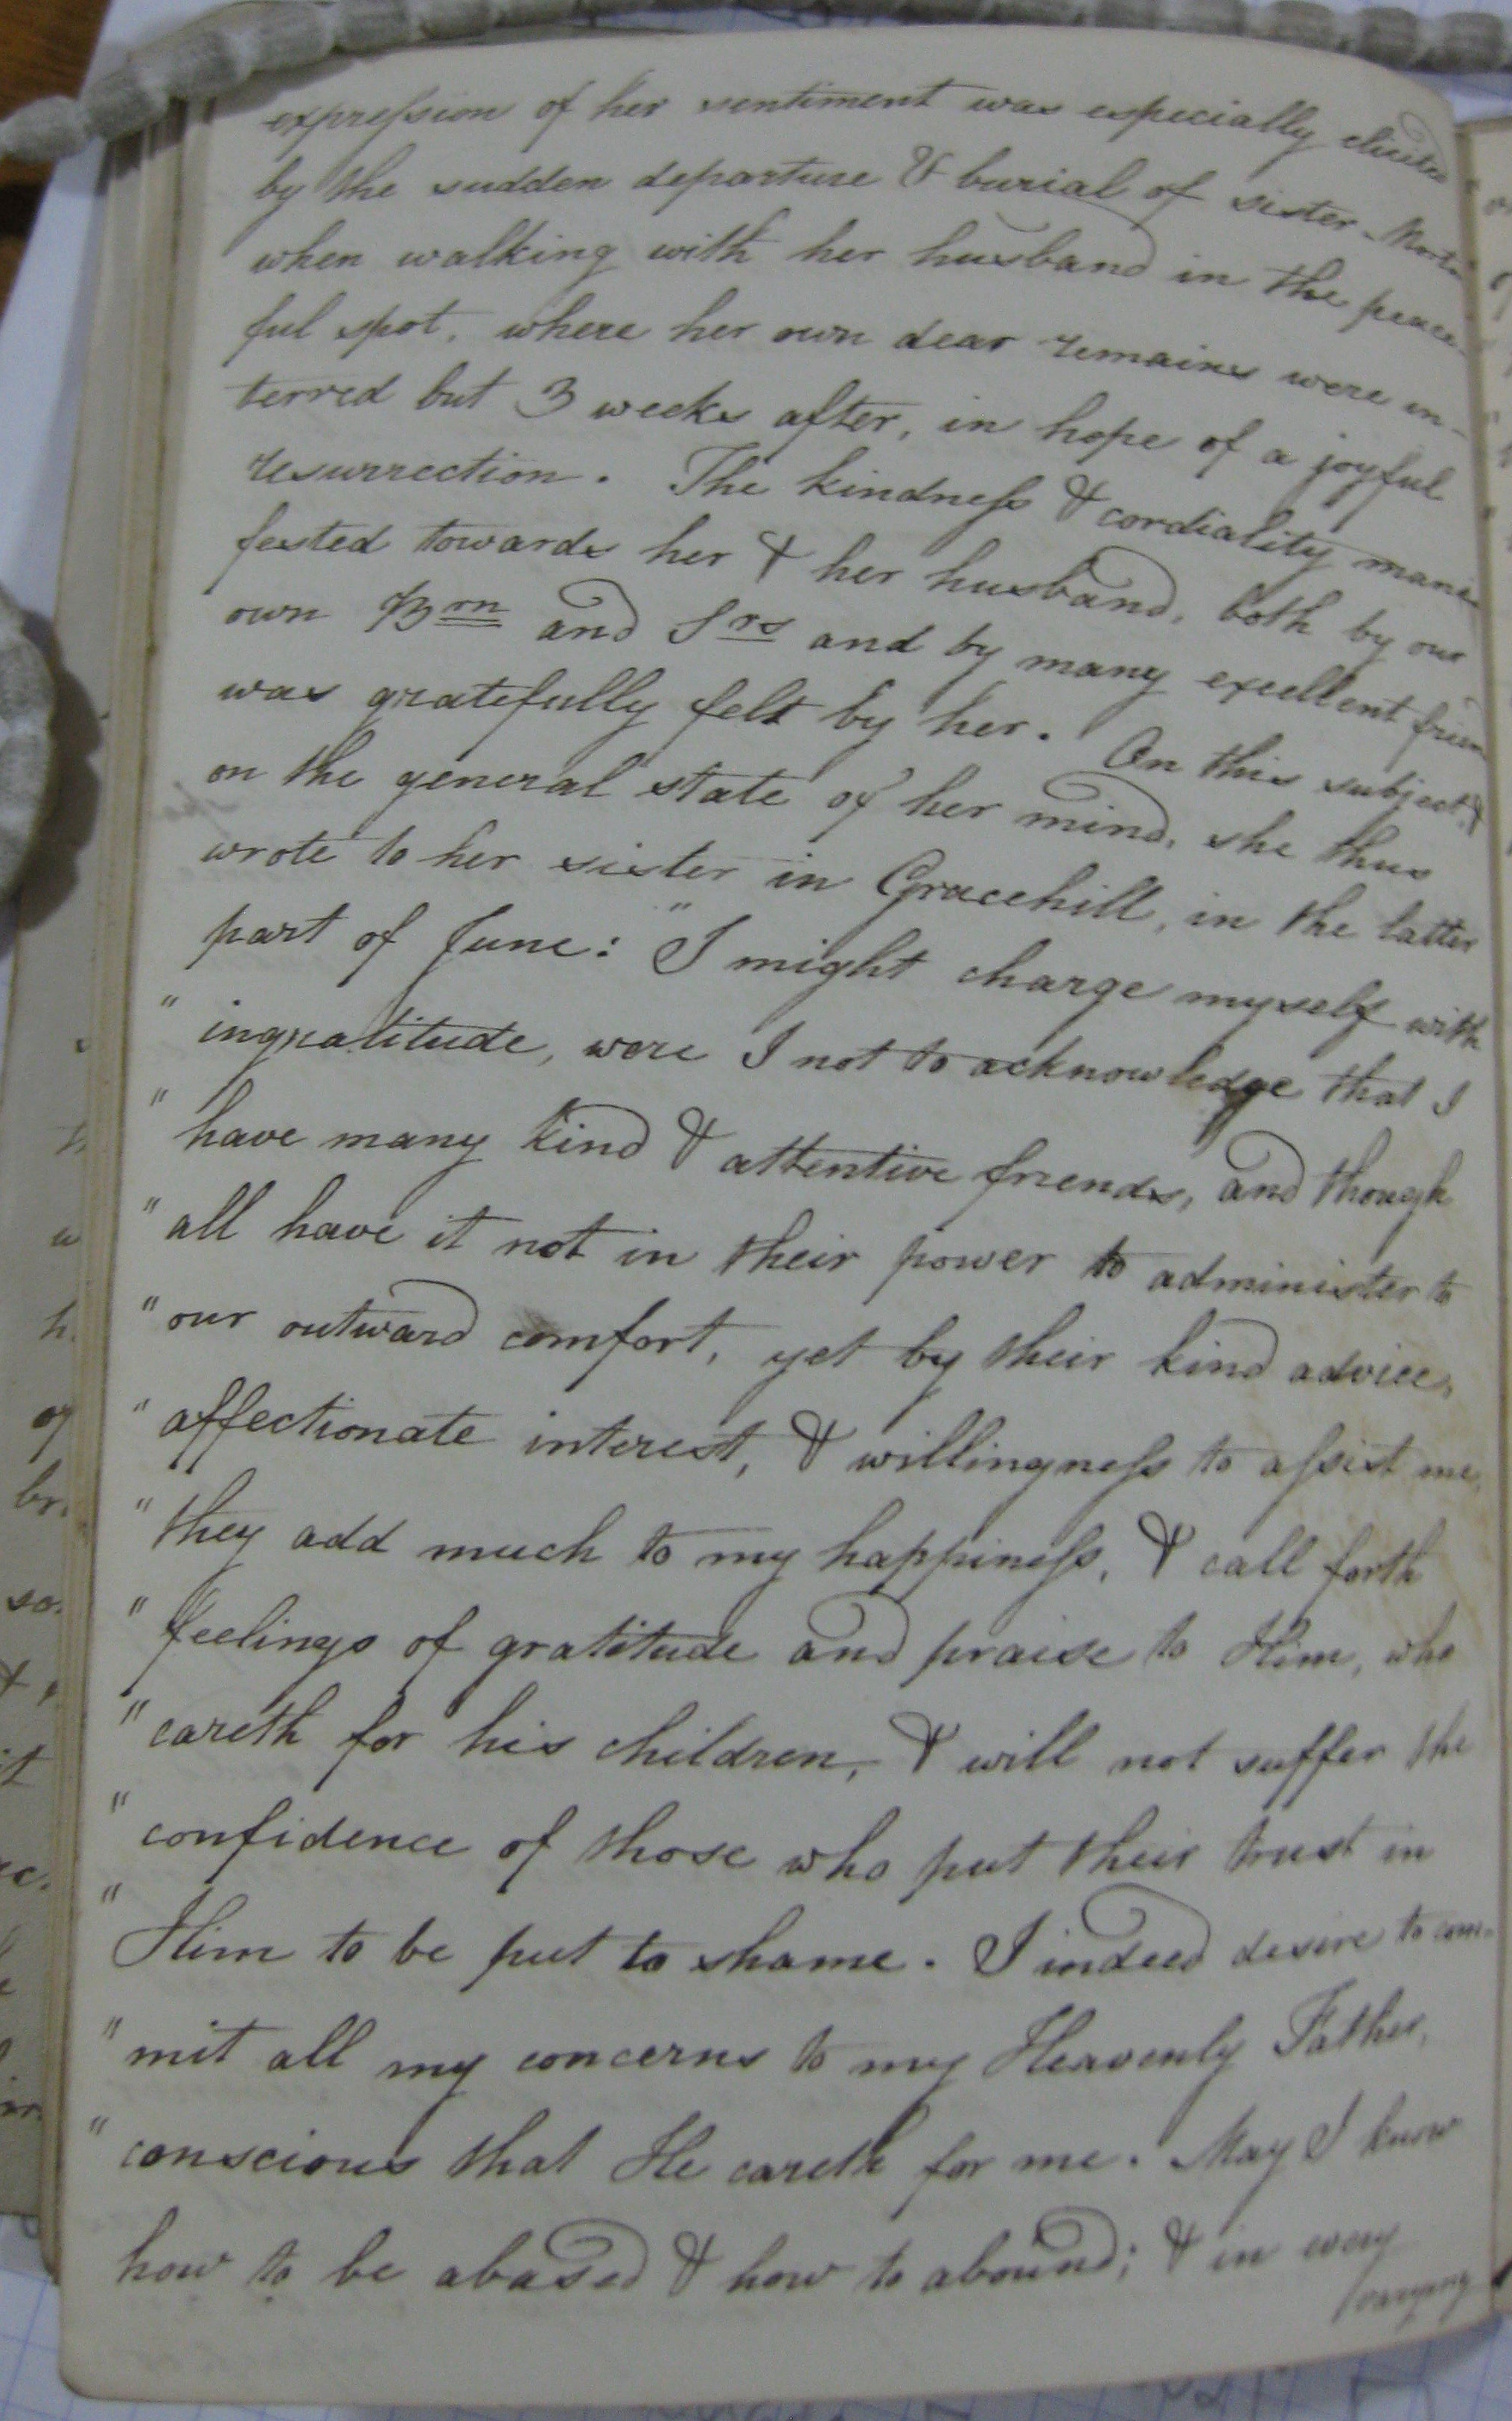 expreſsion of her sentiment was especially elicited
by the sudden departure & burial of sister
when walking with her husband in the peace-
ful spot, where her own dear remains were in-
terred but 3 weeks after, in hope of a joyful
resurrection. The kindneſs & cordiality mani-
fested towards her & her husband, both by our
own Brn and Srs and by many excellent
was gratefully felt by her. On this subject, &
on the general state of her mind, she thus
wrote to her sister in Gracehill, in the latter
part of June: "I might charge myself with
" ingratitude, were I not to acknowledge that I
" have many kind & attentive friends, and though
" all have it not in their power to administer to
" our outward comfort, yet by their kind advice,
" affectionate interest, & willingneſs to aſsist me,
" they add much to my happineſs, & call forth
" feelings of gratitude and praise to Him, who
" careth for his children, & will not suffer the
" confidence of those who put their trust in
" Him to be put to shame. I indeed desire to com-
" mit all my concerns to my Heavenly Father,
" conscious that He careth for me. May I know
how to be abased & how to abound; & in every